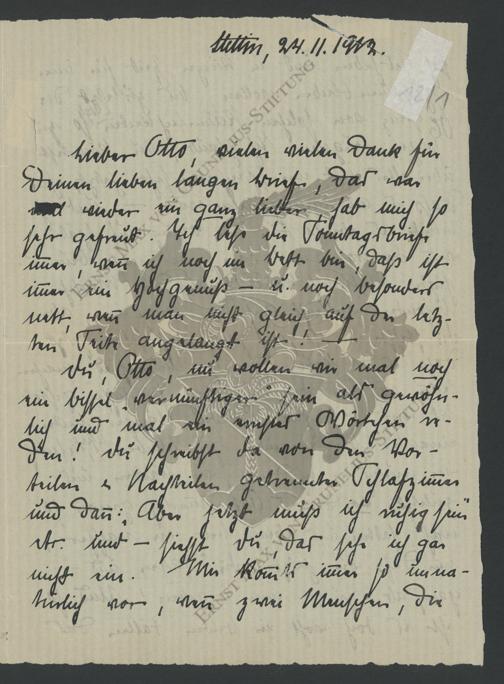 Stettin, 24.11.1912.
12/1
Lieber Otto, vielen vielen Dank für
Deinen lieben langen Brief, das war
wieder ein ganz lieber hab mich so
sehr gefreut. Ich lese die Sonntagsbriefe
immer, wenn ich noch im Bett bin, daß ist
immer ein Hochgenuß – u. noch besonders
nett, wenn man nicht gleich auf der letz-
ten Seite angelangt ist! —
Du, Otto, nu wollen wir mal noch
ein bissel vernünftiger sein als gewöhn-
lich und mal ein ernstes Wörtchen re-
den! Du schreibst da von den Vor-
teilen u Nachteilen getrennter Schlafzimmer
und dann: Aber jetzt muß ich ruhig sein
etc. und – siehst Du, das sehe ich gar
nicht ein. Mir kommts immer so unna-
türlich vor, wenn zwei Menschen, die
ERNST MAX VON GRUNELIUS-STIFTUNG